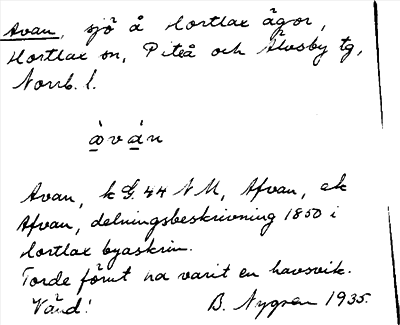 Avan, sjö å Hortlax ägor,
Hortlax sn, Piteå och Älvsby tg,
Norrb. l.
àván
Avan, k G. 44 NM, Afvan, ek
Afvan, delningsbeskrivning 1850 i
Hortlax byaskrin.
Torde förut ha varit en havsvik.
Vänd! B. Nygren 1935.